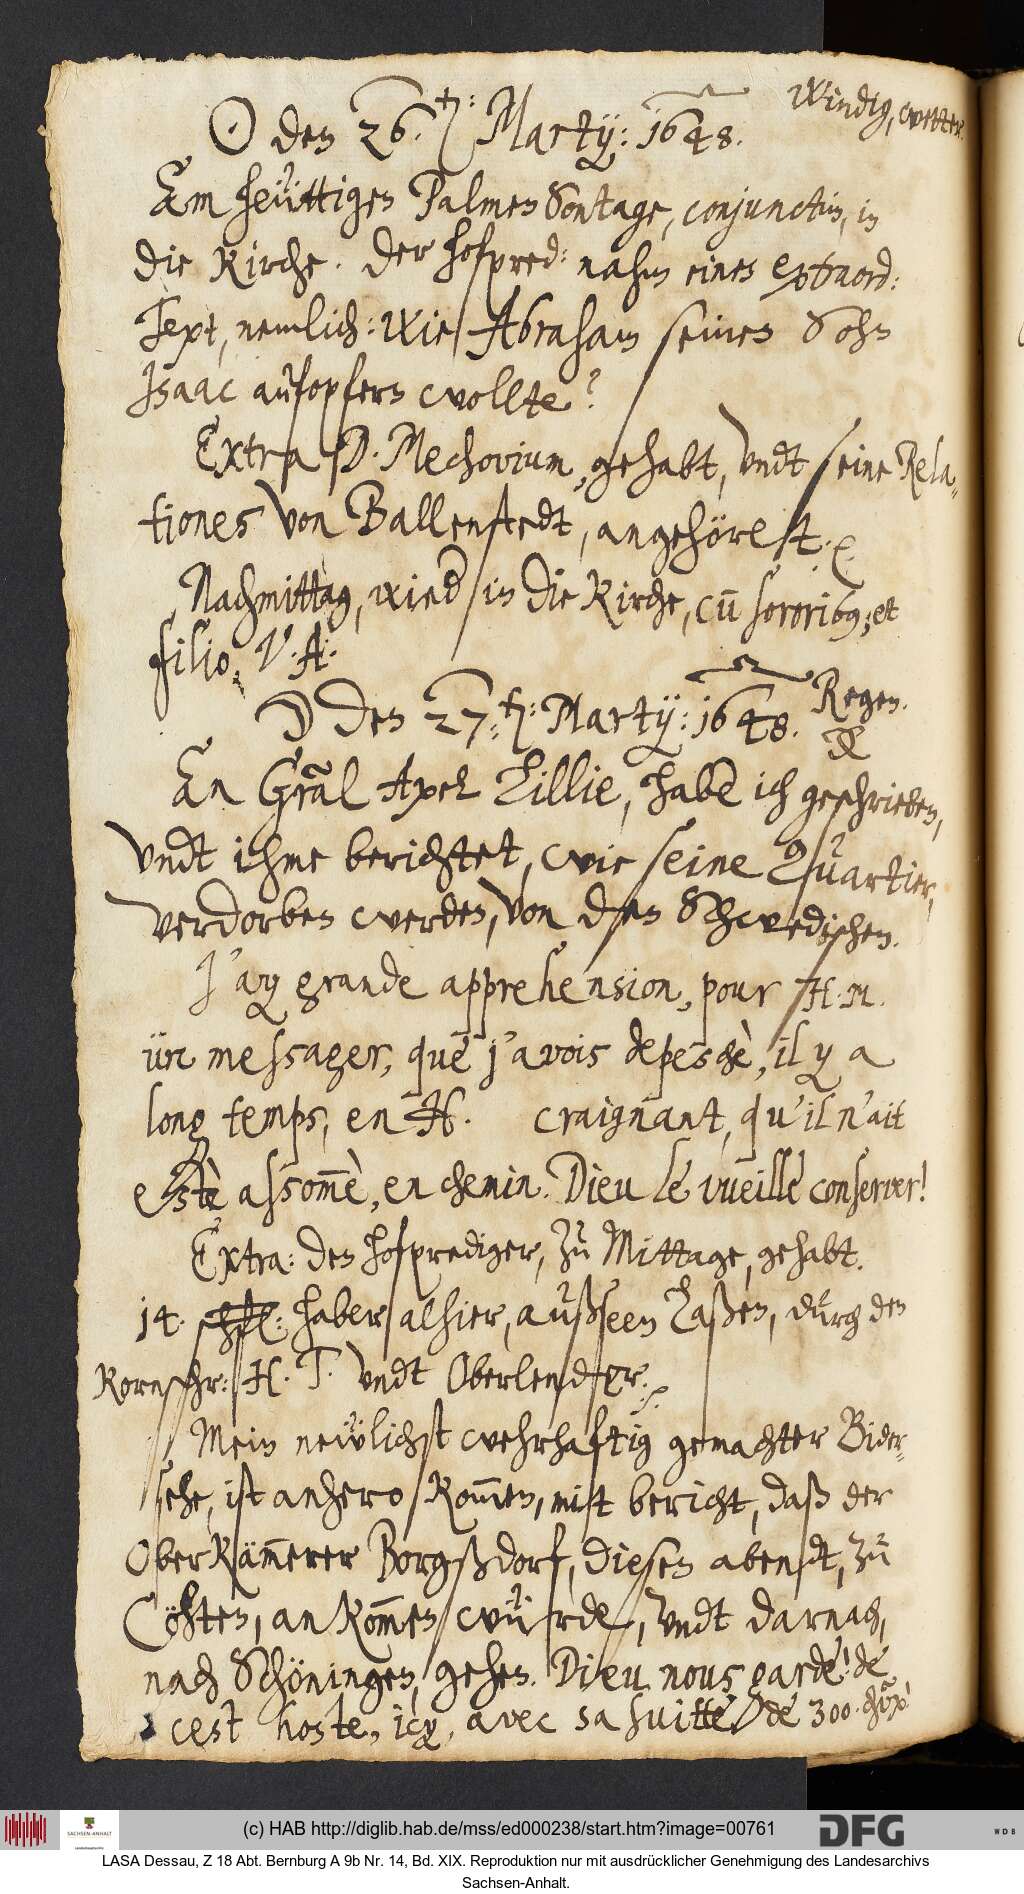 Windig, wetter.
☉ den 26.ten: Martij: 1648.
Am heüttigen Palmen Sontage, conjunctim, in
die Kirche. Der hofpred: nahm einen extraord:
Text, nemlich: Wie Abraham seinen Sohn
Isaac aufopfern wollte?
Extra D. Mechovium, gehabt, Undt seine Rela-
tiones von Ballenstedt, angehöret. et cetera
Nachmittag, wied in die Kirche, cū sororibus, et
filio, V. A.
☽ den 27.ten: Martij: 1648. Regen.
An Gral Axel Lillie, habe ich geschrieben,
Undt ihme berichtet, wie seine Quartier,
verdorben werden, von den Schwedischen.
J'ay grande apprehension, pour H. M.
ün messager, que j'avois depeschè, il y a
long temps, en H. craignant, qu'il n'ait
estè assom̄è, en chemin. Dieu le vueille conserver!
Extra: den hofprediger, zu Mittage, gehabt.
14. haber alhier, außseen laßen, dürch den
Kornschr: H. T. Undt Oberlender.
Mein neülichst wehrhaftig gemachter Bider-
sehe, ist anhero kom̄en, mit bericht, daß der
OberKäm̄erer Borgßdorf, diesen abendt, zu
Cöhten, ankom̄en würde, Undt darnach,
nach Schöningen, gehen. Dieu nous garde! de
cest hoste, icy, avec sa suitte, de 300.
(c) HAB http://diglib.hab.de/mss/ed000238/start.htm?image=00761
SACHSEN-ANHALT
DFG
WDB
LASA Dessau, Z 18 Abt. Bernburg A 9b Nr. 14, Bd. XIX. Reproduktion nur mit ausdrücklicher Genehmigung des Landesarchivs
Sachsen-Anhalt.